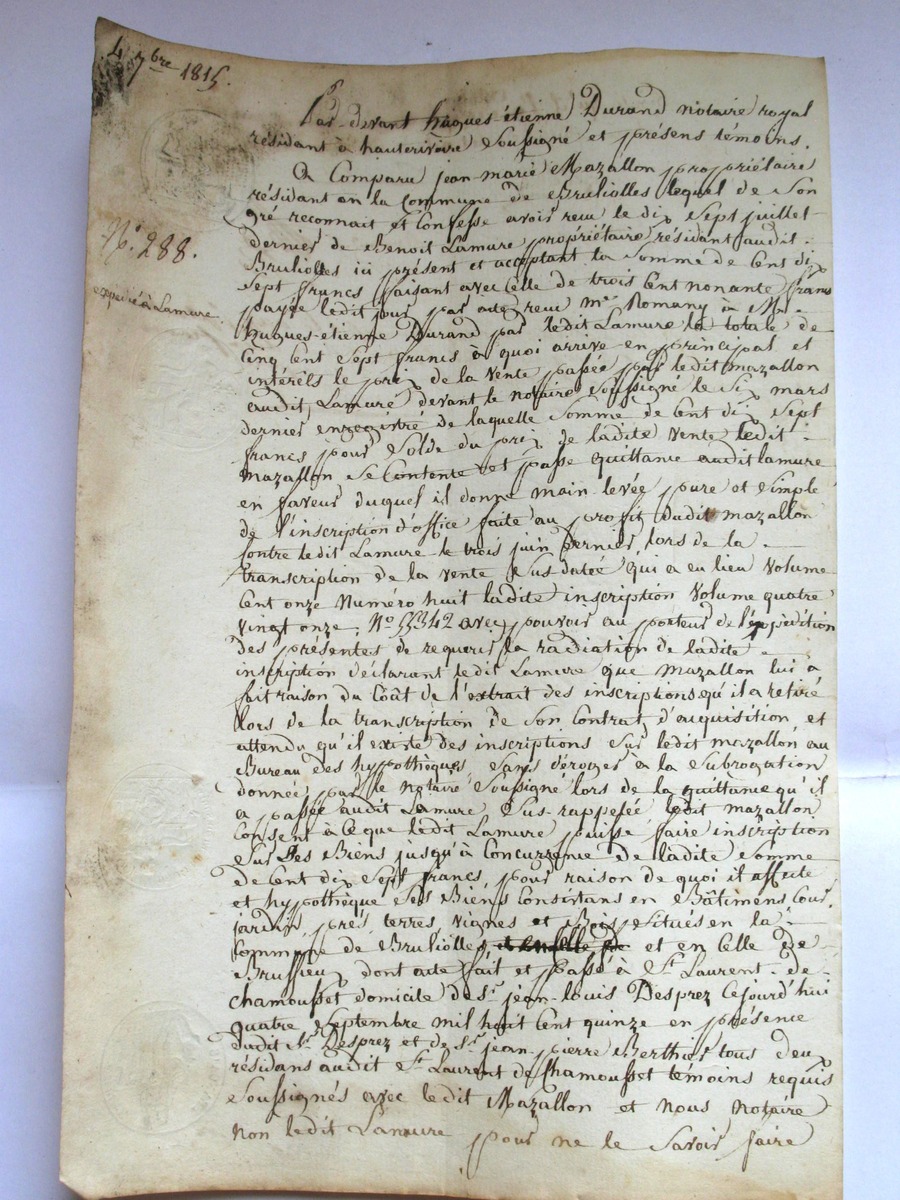 4 7bre 1815.
Par-devant hugues-étienne Durand notaire royal
résidant à hauterivoire Soussigné et présens témoins.
A Comparu jean-marie Mazallon propriétaire
résidant en la Commune de Brulioles lequel de Son
gré reconnait et Confesse avoir reçu le dix Sept juillet
N°. 288.
dernier de Benoit Lamure propriétaire résidant audit
Brulioles ici présent et acceptant la Somme de Cent dix
Sept francs faisant avec celle de trois Cent nonante francs
expédié à Lamure.
payée ledit jour par reçu me. Romany à Me.
hugues-étienne Durand par ledit Lamure la totale de
Cinq Cent Sept francs à quoi arrive en principal et
intérêts le prix de la vente passée par ledit mazallon
audit Lamure devant le notaire Soussigné le Six mars
dernier enregistré de laquelle Somme de Cent dix Sept
francs pour Solde du prix de ladite vente ledit
mazallon Se Contente et passe quittance audit lamure
en faveur duquel il donne main-levée pure et Simple
de l'inscription d'office faite au profit dudit mazallon
Contre ledit Lamure le trois juin dernier lors de la
transcription de la vente Sus datée qui a eu lieu Volume
Cent onze Numéro huit ladite inscription Volume quatre
vingt onze N° 55342 avec pouvoir au porteur de l'expédition
des présentes de requerir la radiation de ladite
inscription déclarant ledit Lamure que Mazallon lui a
fait raison du Coût de l'extrait des inscriptions qu'il a retiré
lors de la transcription de Son Contrat d'aquisition, et
attendu qu'il existe des inscriptions Sur ledit mazallon au
Bureau des hypothèques, Sans déroger à la Subrogation
donnée par le notaire Soussigné lors de la quittance qu'il
a passée audit Lamure Sus-rappelée ledit mazallon
Consent à Ce que ledit Lamure puisse faire inscription
Sur Ses Biens jusqu'à Concurrence de ladite Somme
de Cent dix Sept francs, pour raison de quoi il affecte
et hypothèque Ses Biens Consistans en Bâtimens Cour,
jardin, prés, terres, vignes et Bois Situés en la
Commune de Brulioles et en Celle de
Brussieu, dont acte fait et passé à St. Laurent-de-
chamousset domicile de Sr. jean-louis Desprez Cejourd'hui
quatre Septembre mil huit Cent quinze en présence
dudit Sr. Desprez et de Sr. jean-pierre Berthier tous deux
résidans audit St. Laurent de Chamousset témoins requis
Soussignés avec ledit Mazallon et nous notaire
non ledit Lamure pour ne le Savoir faire